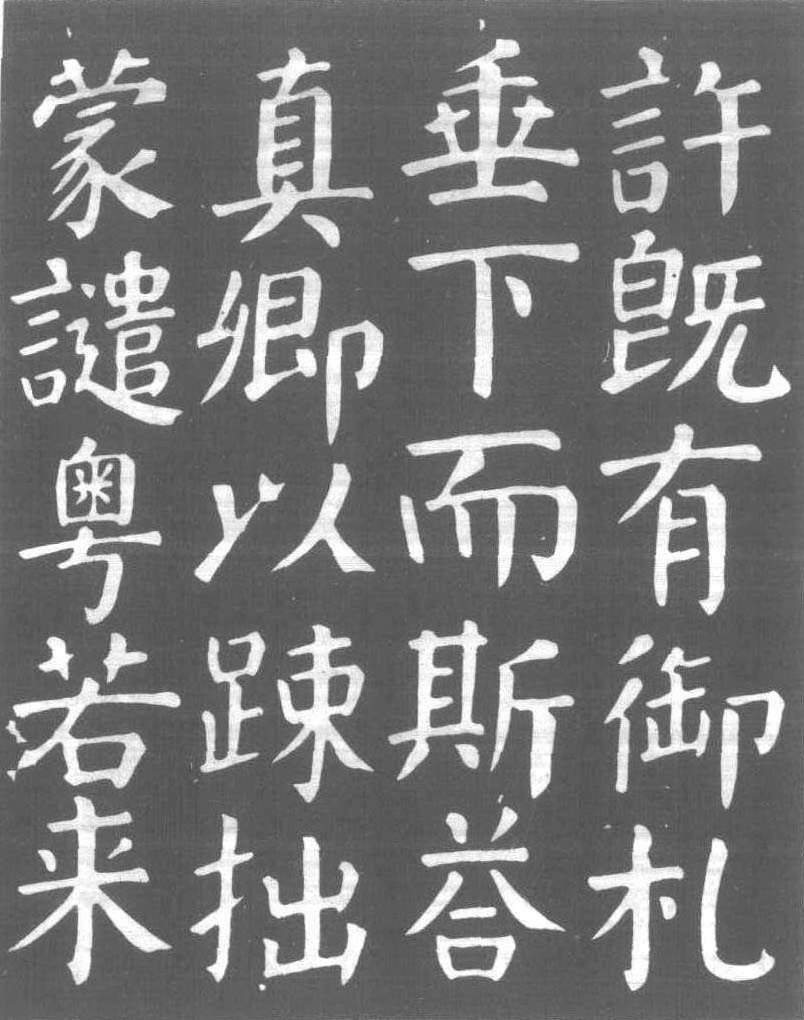 許既有御札
垂下而斯荅
真卿以踈拙
蒙譴粵若来